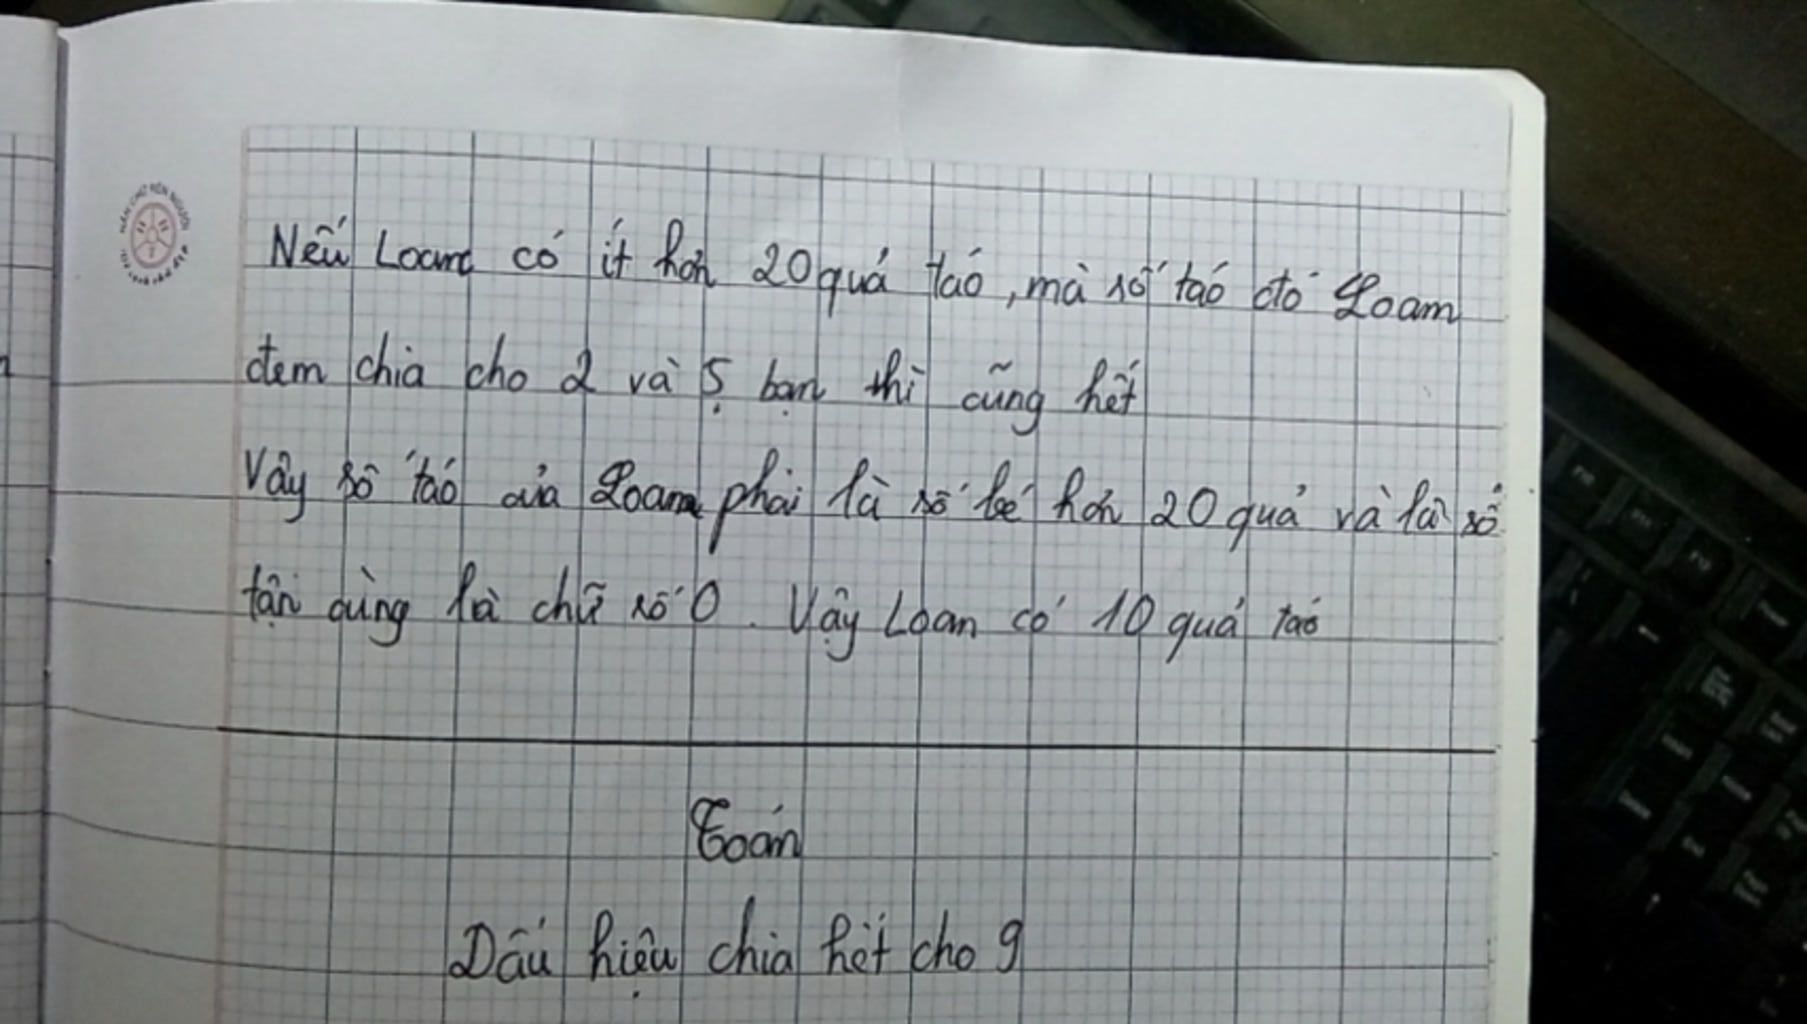 Nếu Loan có ít hơn 20 quả táo, mà số táo đó Loam
đem chia cho 2 và 5 bạn thì cũng hết
Vậy số táo của Loan phải là số bé hơn 20 quả và là số
tận cùng là chữ số 0. Vậy Loan có 10 quả táo
Toán
Dấu hiệu chia hết cho 9